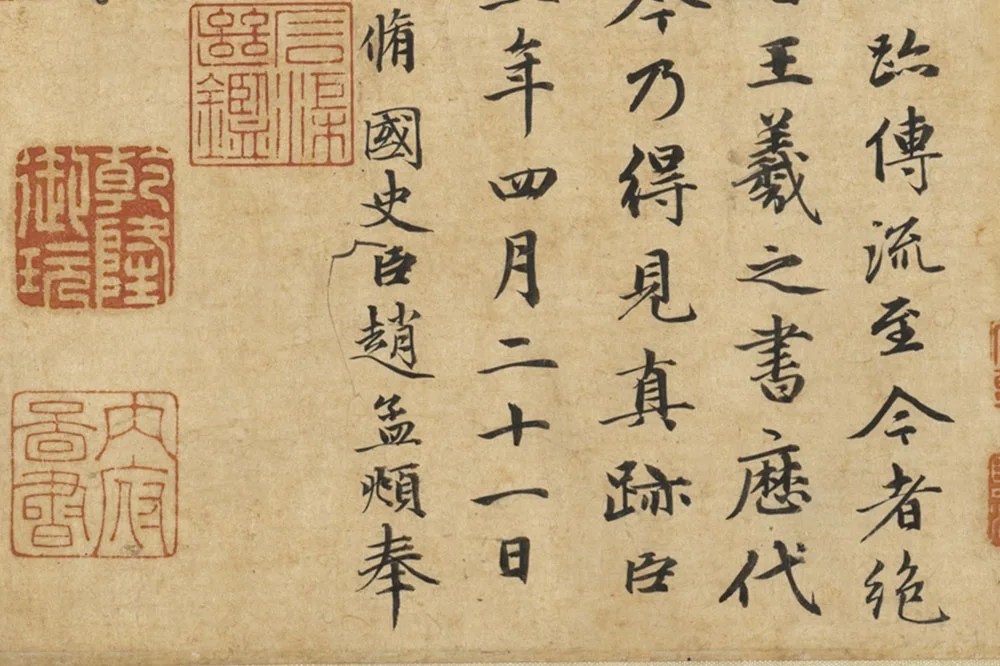 跡傳流至今者絶
王羲之書歷代
今乃得見真跡臣
年四月二十一日
脩國史臣趙孟頫奉
石渠
繼鑑
乾隆
御玩
内府
圖書